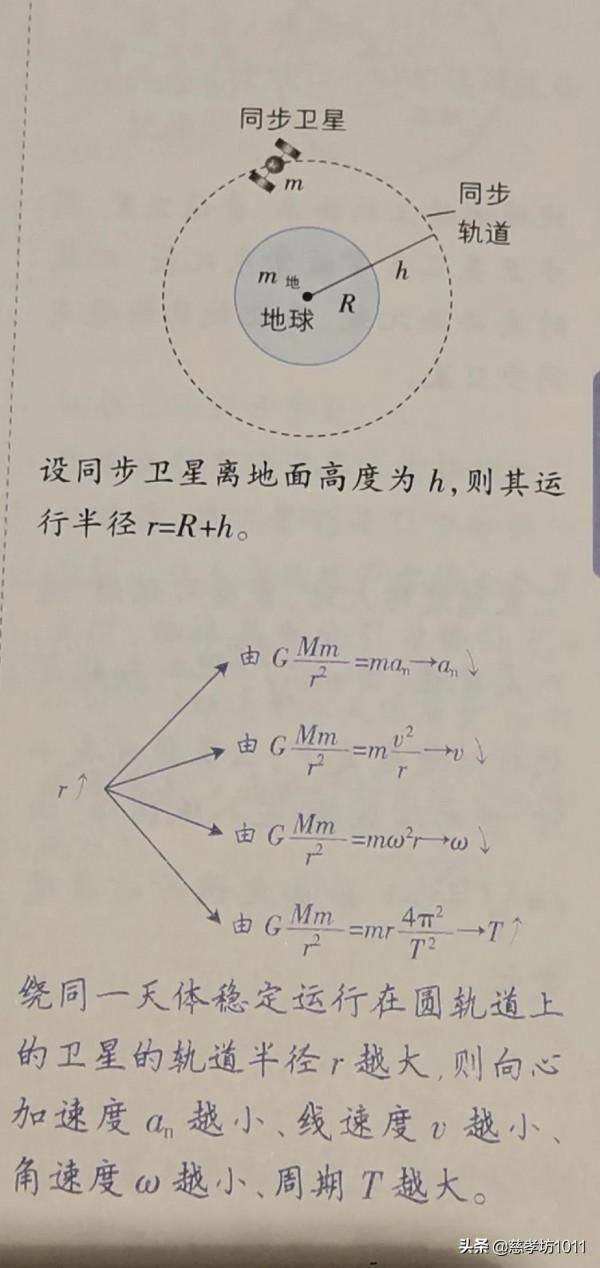 同步卫星
m
同步
轨道
h
m地
R
地球
设同步卫星离地面高度为h,则其运
行半径r=R+h。
由 G\frac{Mm}{r^2}=ma_n→a_n↓
由 G\frac{Mm}{r^2}=m\frac{v^2}{r}→v↓
r↑
由 G\frac{Mm}{r^2}=mω^2r→ω↓
由 G\frac{Mm}{r^2}=mr\frac{4π^2}{T^2}→T↑
绕同一天体稳定运行在圆轨道上
的卫星的轨道半径r越大,则向心
加速度a_n越小、线速度v越小、
角速度ω越小、周期T越大。
头条 @慈孝坊1011